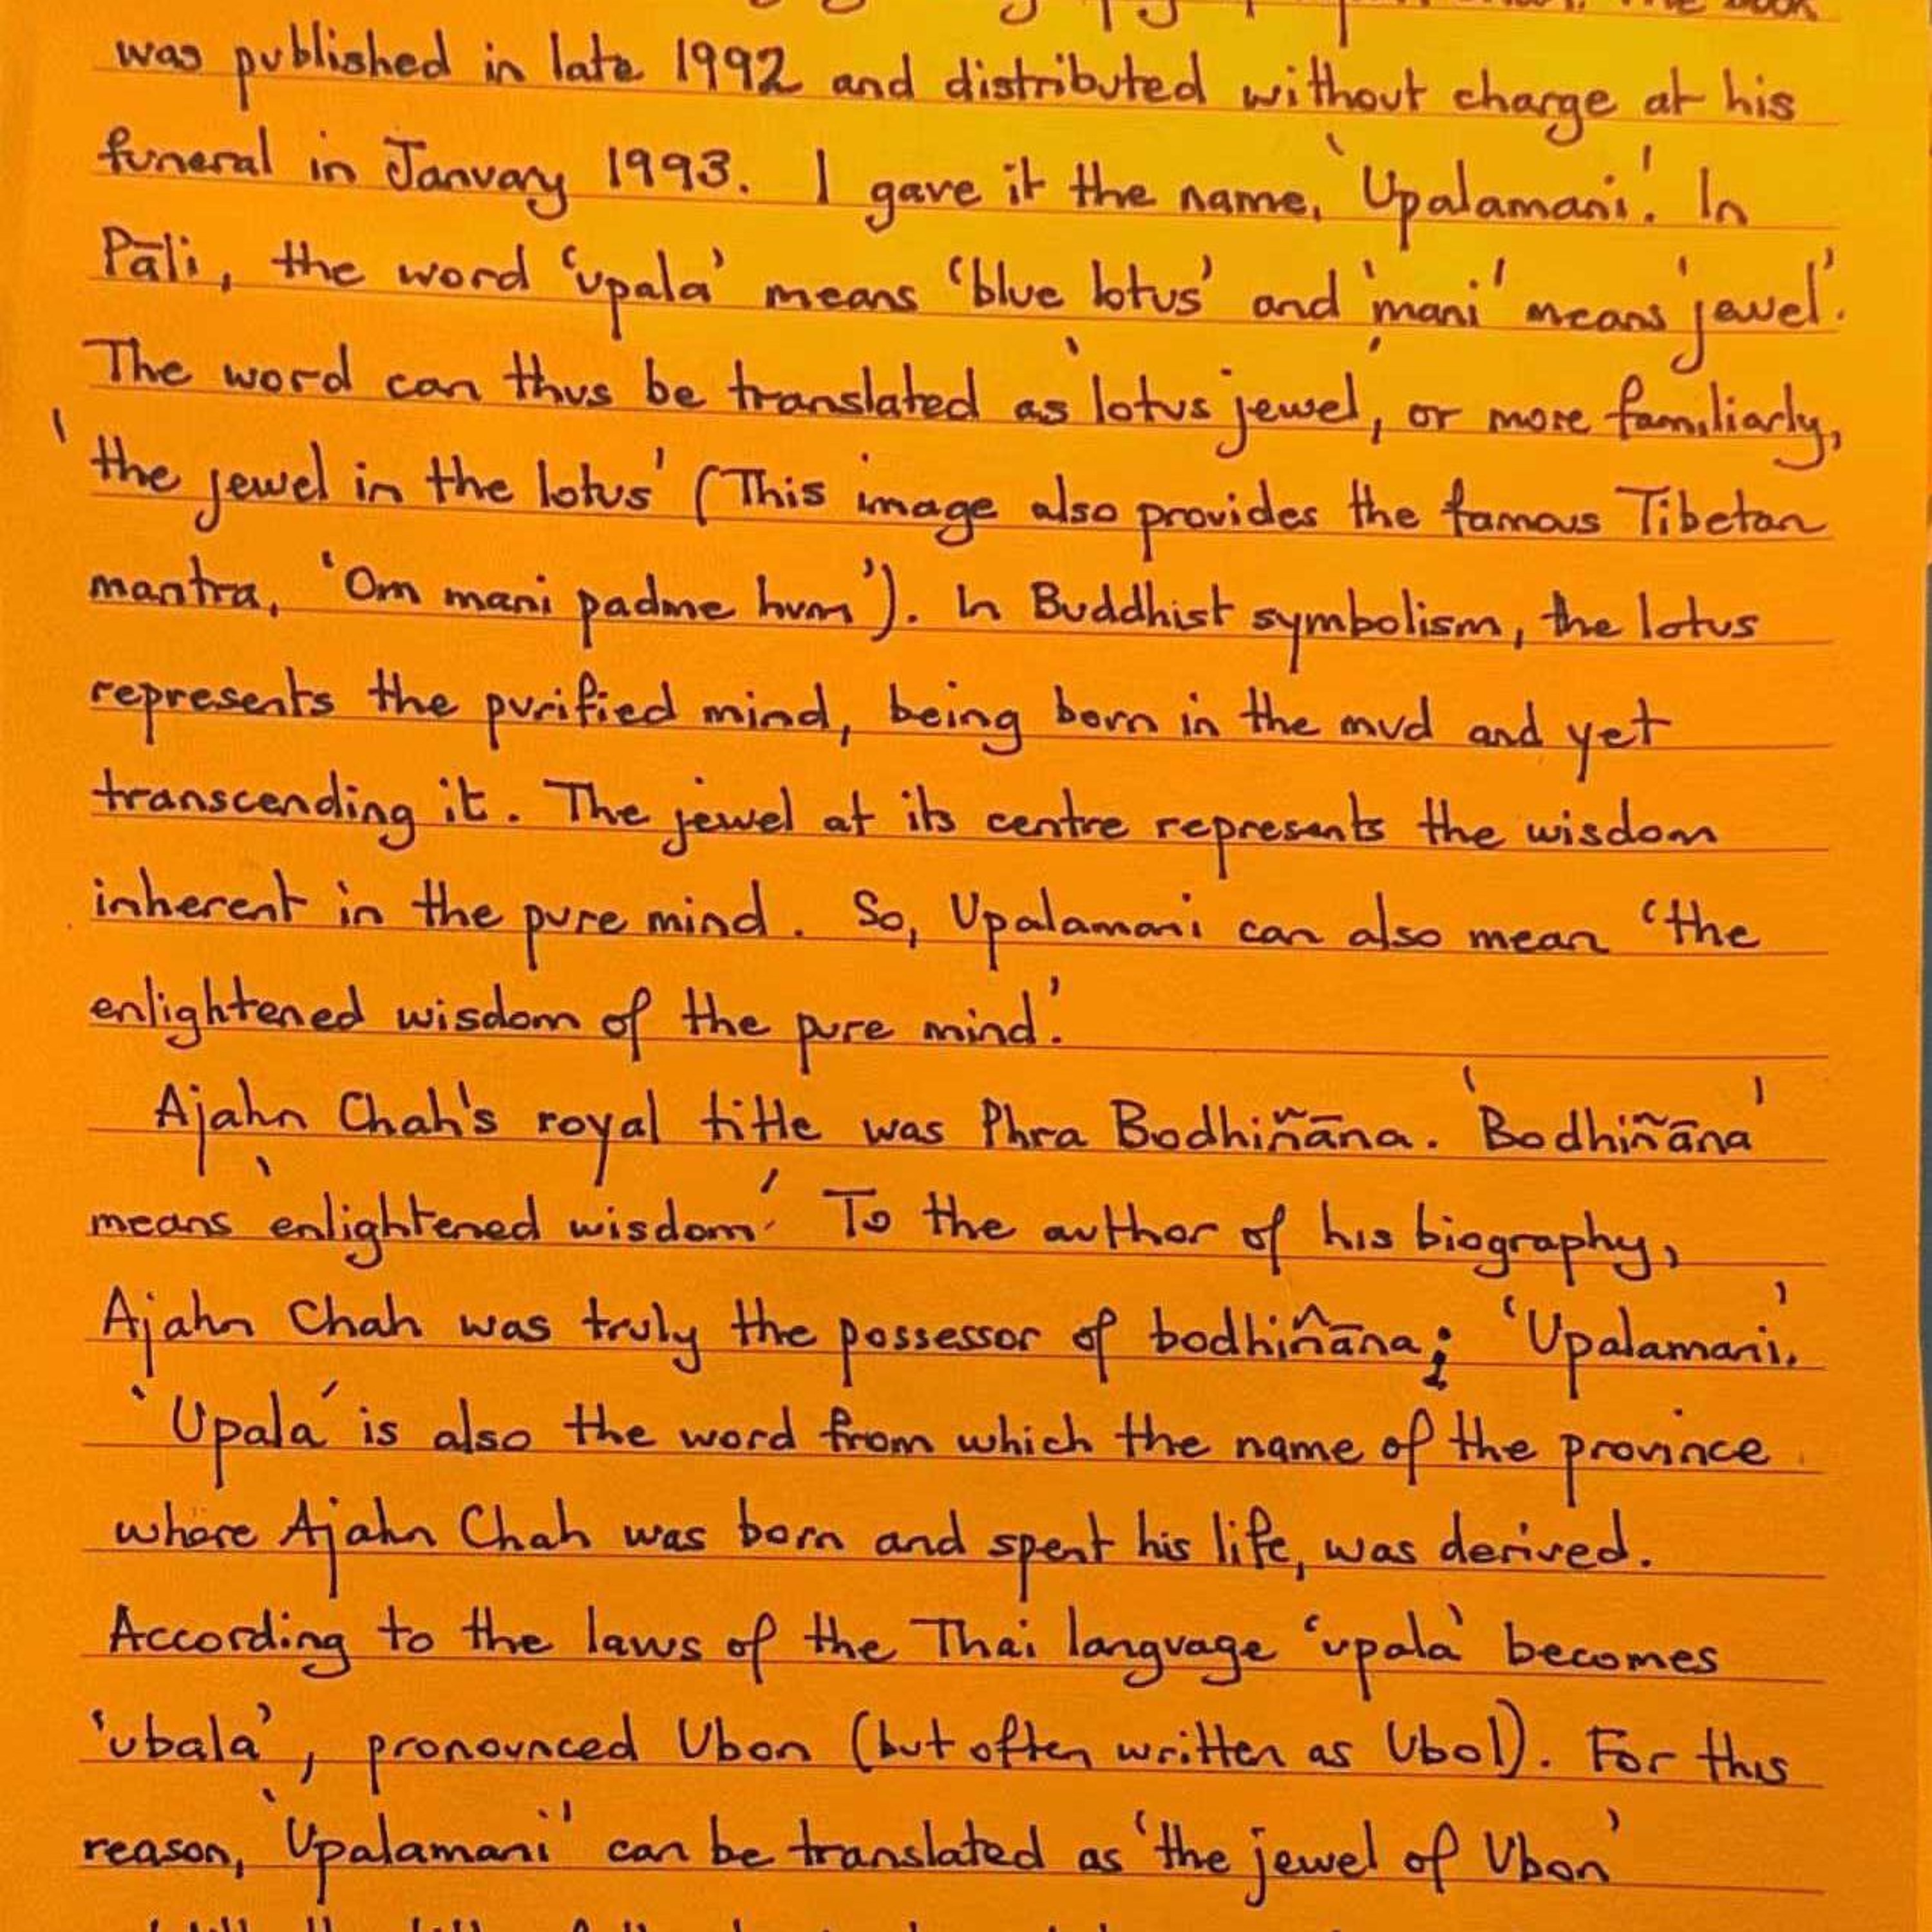 book
was published in late 1992 and distributed without charge at his
funeral in January 1993. I gave it the name, 'Upalamani'. In
Pāli, the word 'upala' means 'blue lotus' and 'mani' means 'jewel'.
The word can thus be translated as 'lotus jewel', or more familiarly,
'the jewel in the lotus' (This image also provides the famous Tibetan
mantra, 'Om mani padme hum'). In Buddhist symbolism, the lotus
represents the purified mind, being born in the mud and yet
transcending it. The jewel at its centre represents the wisdom
inherent in the pure mind. So, Upalamani can also mean 'the
enlightened wisdom of the pure mind'.
Ajahn Chah's royal title was Phra Bodhiñāna. 'Bodhiñāna'
means 'enlightened wisdom'. To the author of his biography,
Ajahn Chah was truly the possessor of bodhiñāna; 'Upalamani'.
'Upala' is also the word from which the name of the province
where Ajahn Chah was born and spent his life, was derived.
According to the laws of the Thai language 'upala' becomes
'ubala', pronounced Ubon (but often written as Ubol). For this
reason, 'Upalamani' can be translated as 'the jewel of Ubon'